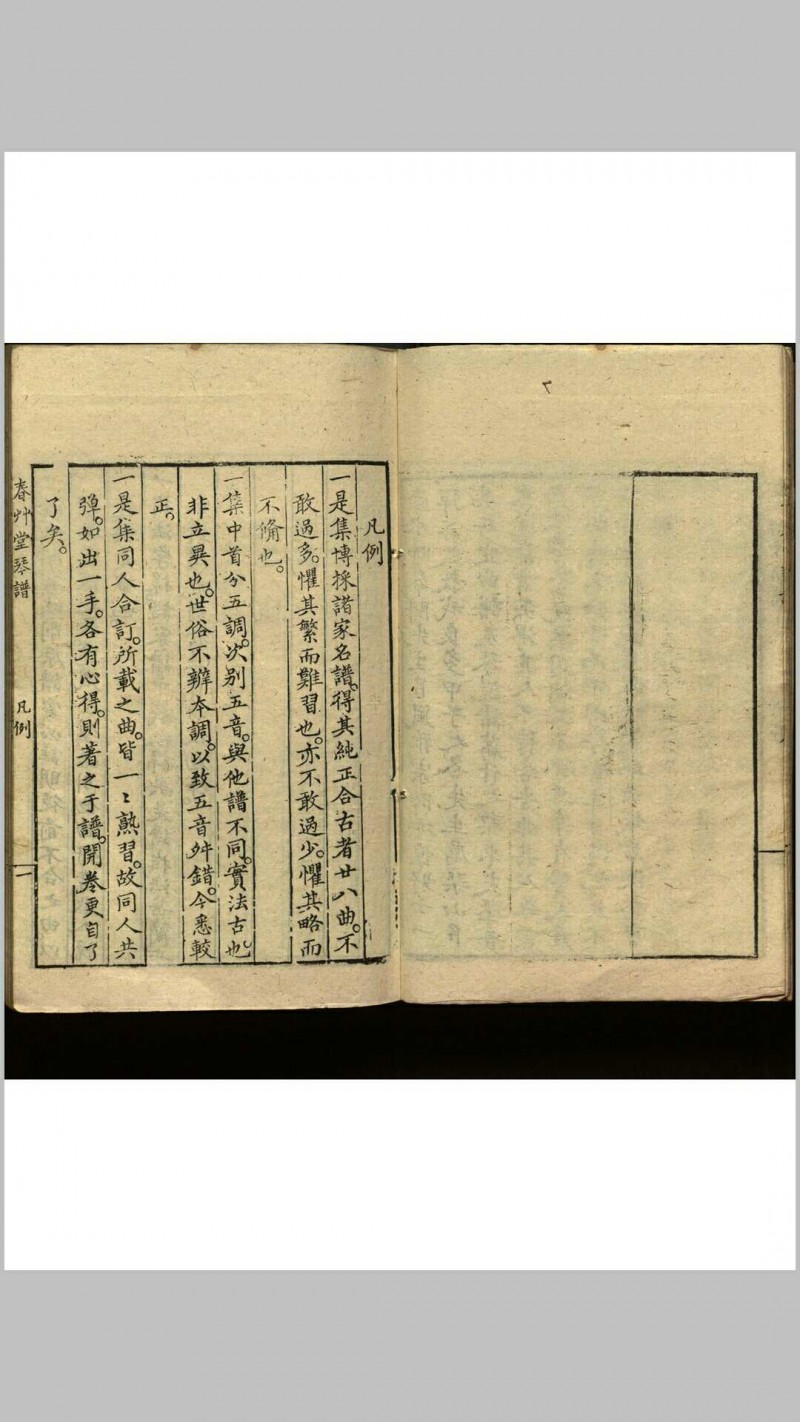 凡例
一是集博採諸家名譜。得其純正合古者廿八曲。不
敢過多。懼其繁而難習也。亦不敢過少。懼其略而
不俻也。
一集中首分五調。次别五音。與他譜不同。實法古也。
非立異也。世俗不辨本調。以致五音舛錯。今悉較
正。
一是集同人合訂。所載之曲。皆一〻熟習。故同人共
彈。如出一手。各有心得。則著之于譜。開卷更自了
了矣。
春艸堂琴譜
凡例
一